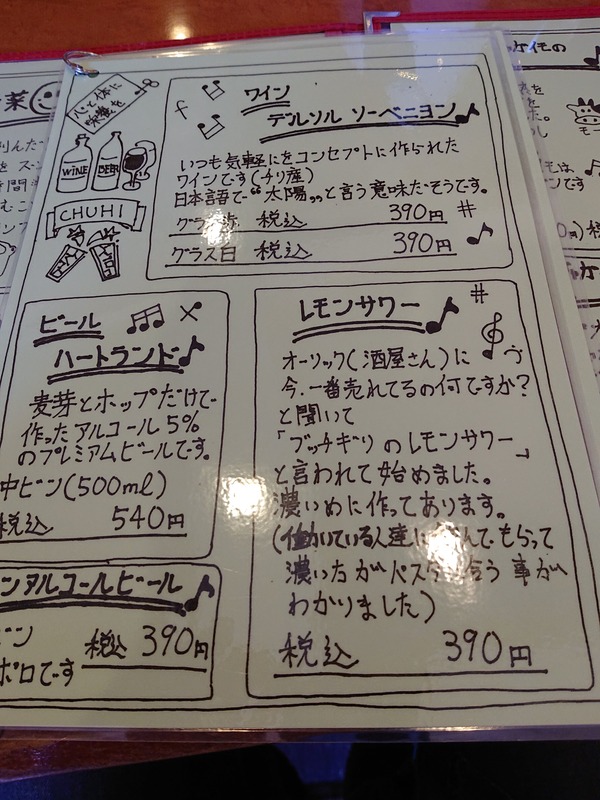 心と体に
栄養を
WINE
BEER
CHUHI
ワイン
デルソル ソーベニヨン
いつも気軽にをコンセプトに作られた
ワインです(チリ産)
日本語で“太陽„と言う意味だそうです。
グラス赤 税込 390円
グラス白 税込 390円
ビール
ハートランド
麦芽とホップだけで
作ったアルコール5%
のプレミアムビールです。
中ビン(500ml)
税込 540円
ンアルコールビール
ビン 税込 390円
ポロです
レモンサワー
オーリック(酒屋さん)に
今、一番売れてるの何ですか?
と聞いて
「ブッチギリのレモンサワー」
と言われて始めました。
濃いめに作ってあります。
(働いている人達に んでもらって
濃い方がパスタに合う事が
わかりました)
税込 390円
菜
モー